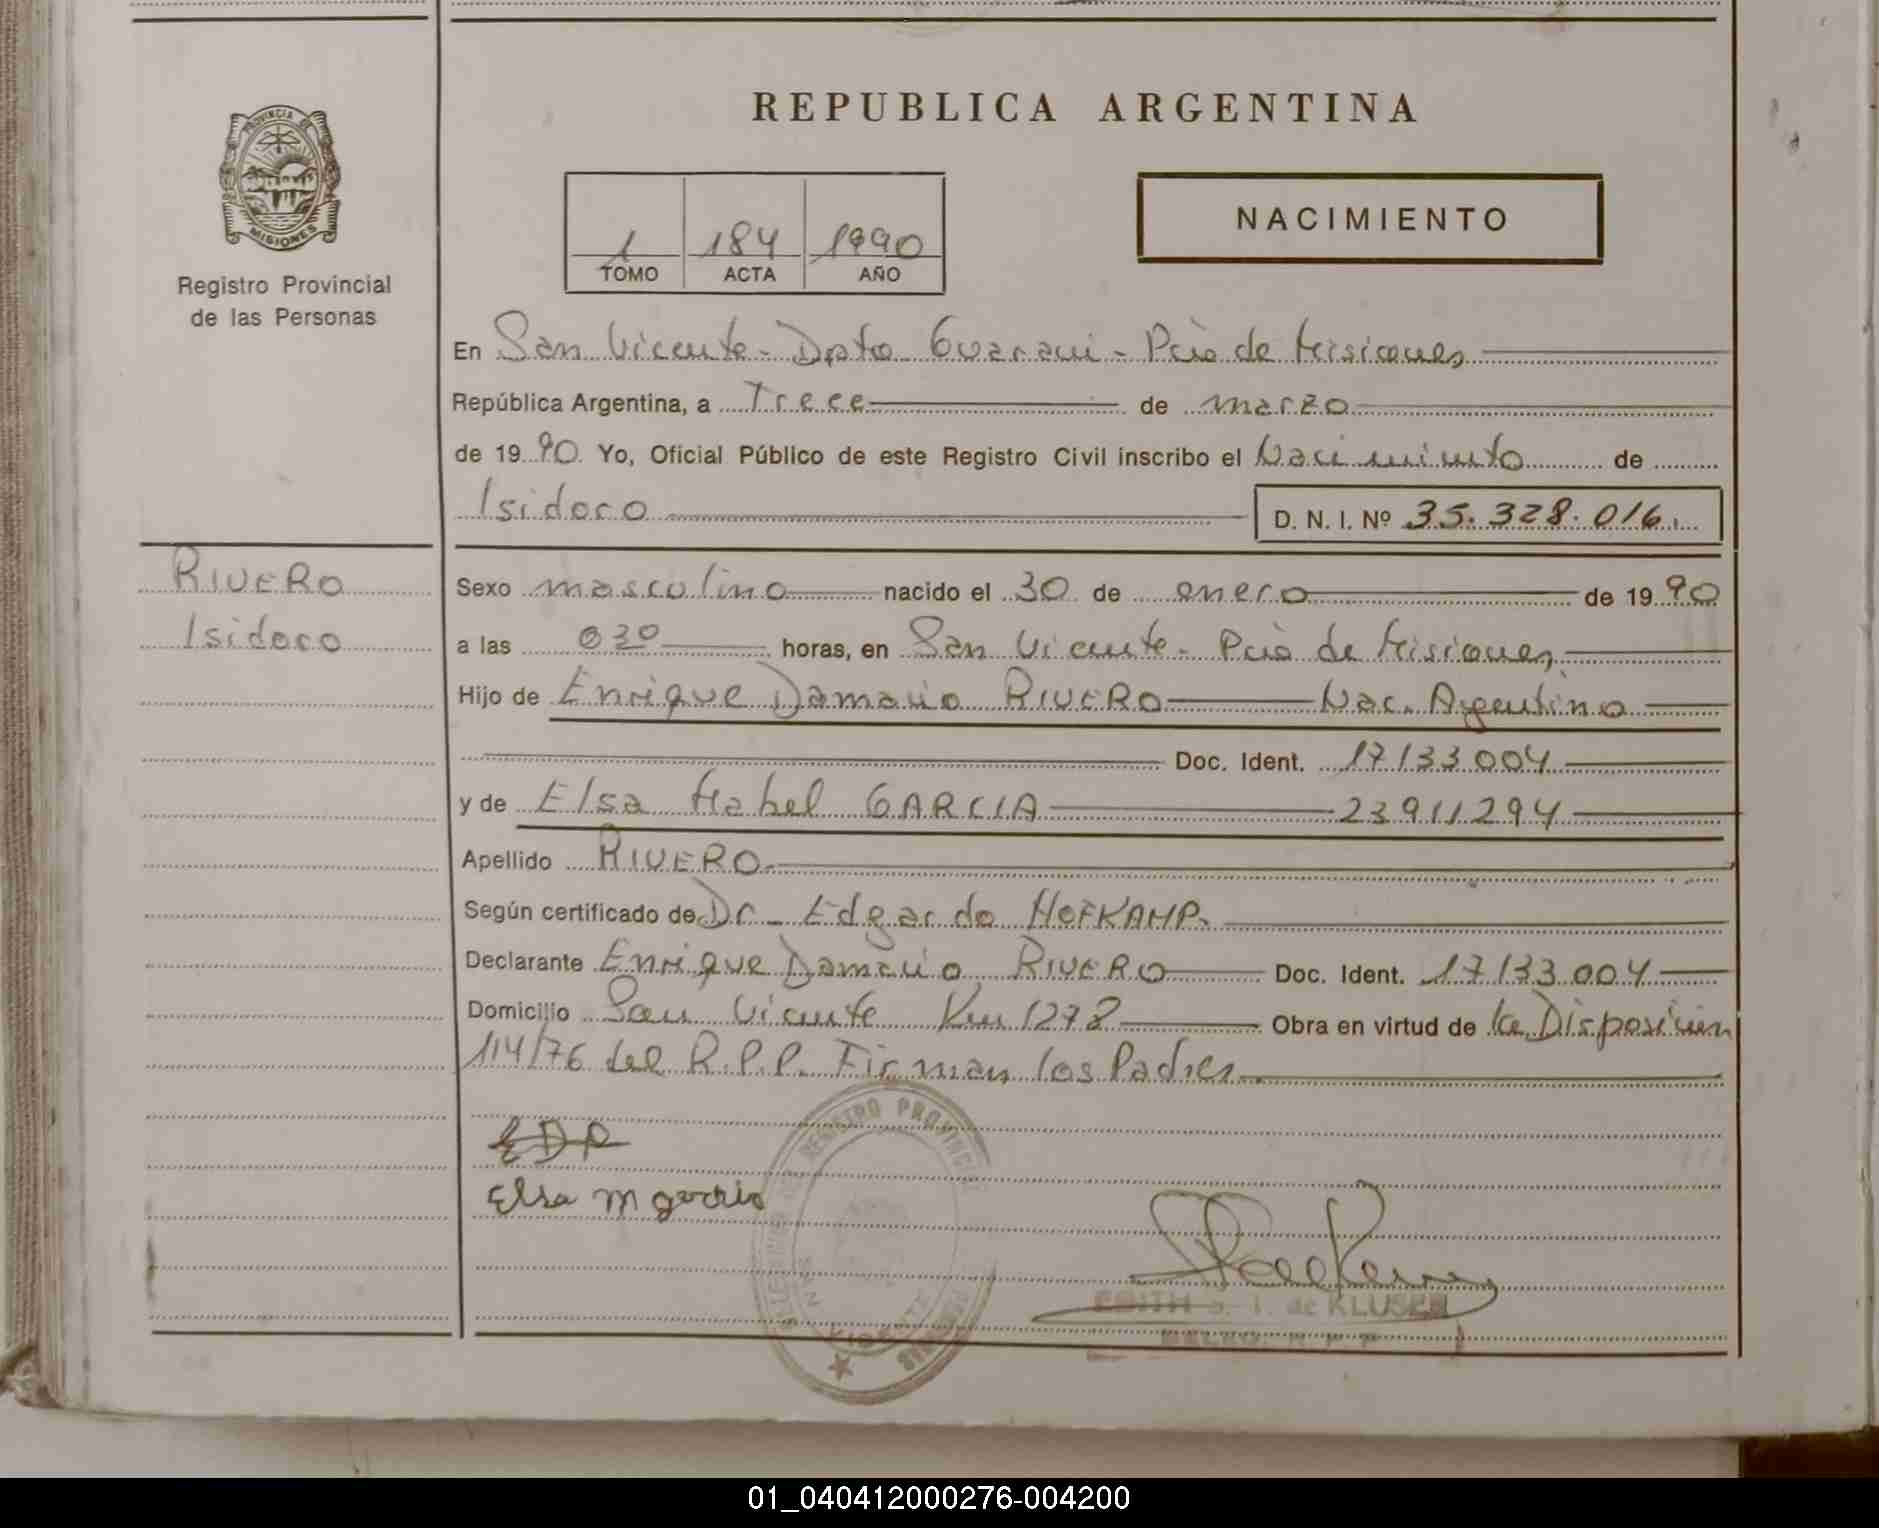 REPUBLICA ARGENTINA
PROVINCIA DE
MISIONES
Registro Provincial
de las Personas
1 184 1990
TOMO ACTA AÑO
NACIMIENTO
En San Vicente - Dpto Guarani - Pcia de Misiones
República Argentina, a Trece de marzo
de 1990 Yo, Oficial Público de este Registro Civil inscribo el Nacimiento de
Isidoro D. N. I. Nº 35.328.016
RIVERO
Isidoro
Sexo masculino nacido el 30 de enero de 1990
a las 030 horas, en San Vicente - Pcia de Misiones
Hijo de Enrique Damacio RIVERO Nac. Argentino
Doc. Ident. 17133004
y de Elsa Mabel GARCIA 23911294
Apellido RIVERO
Según certificado de Dr. Edgardo HOFKAMP.
Declarante Enrique Damacio RIVERO Doc. Ident. 17133.004
Domicilio San Vicente Km 1278 Obra en virtud de la Disposicion
114/76 del R.P.P. Firman los Padres
EDR
Elsa M garcia
REGISTRO PROVINCIAL
VICENTE
EDITH S. I. de KLUSER
01_040412000276-004200